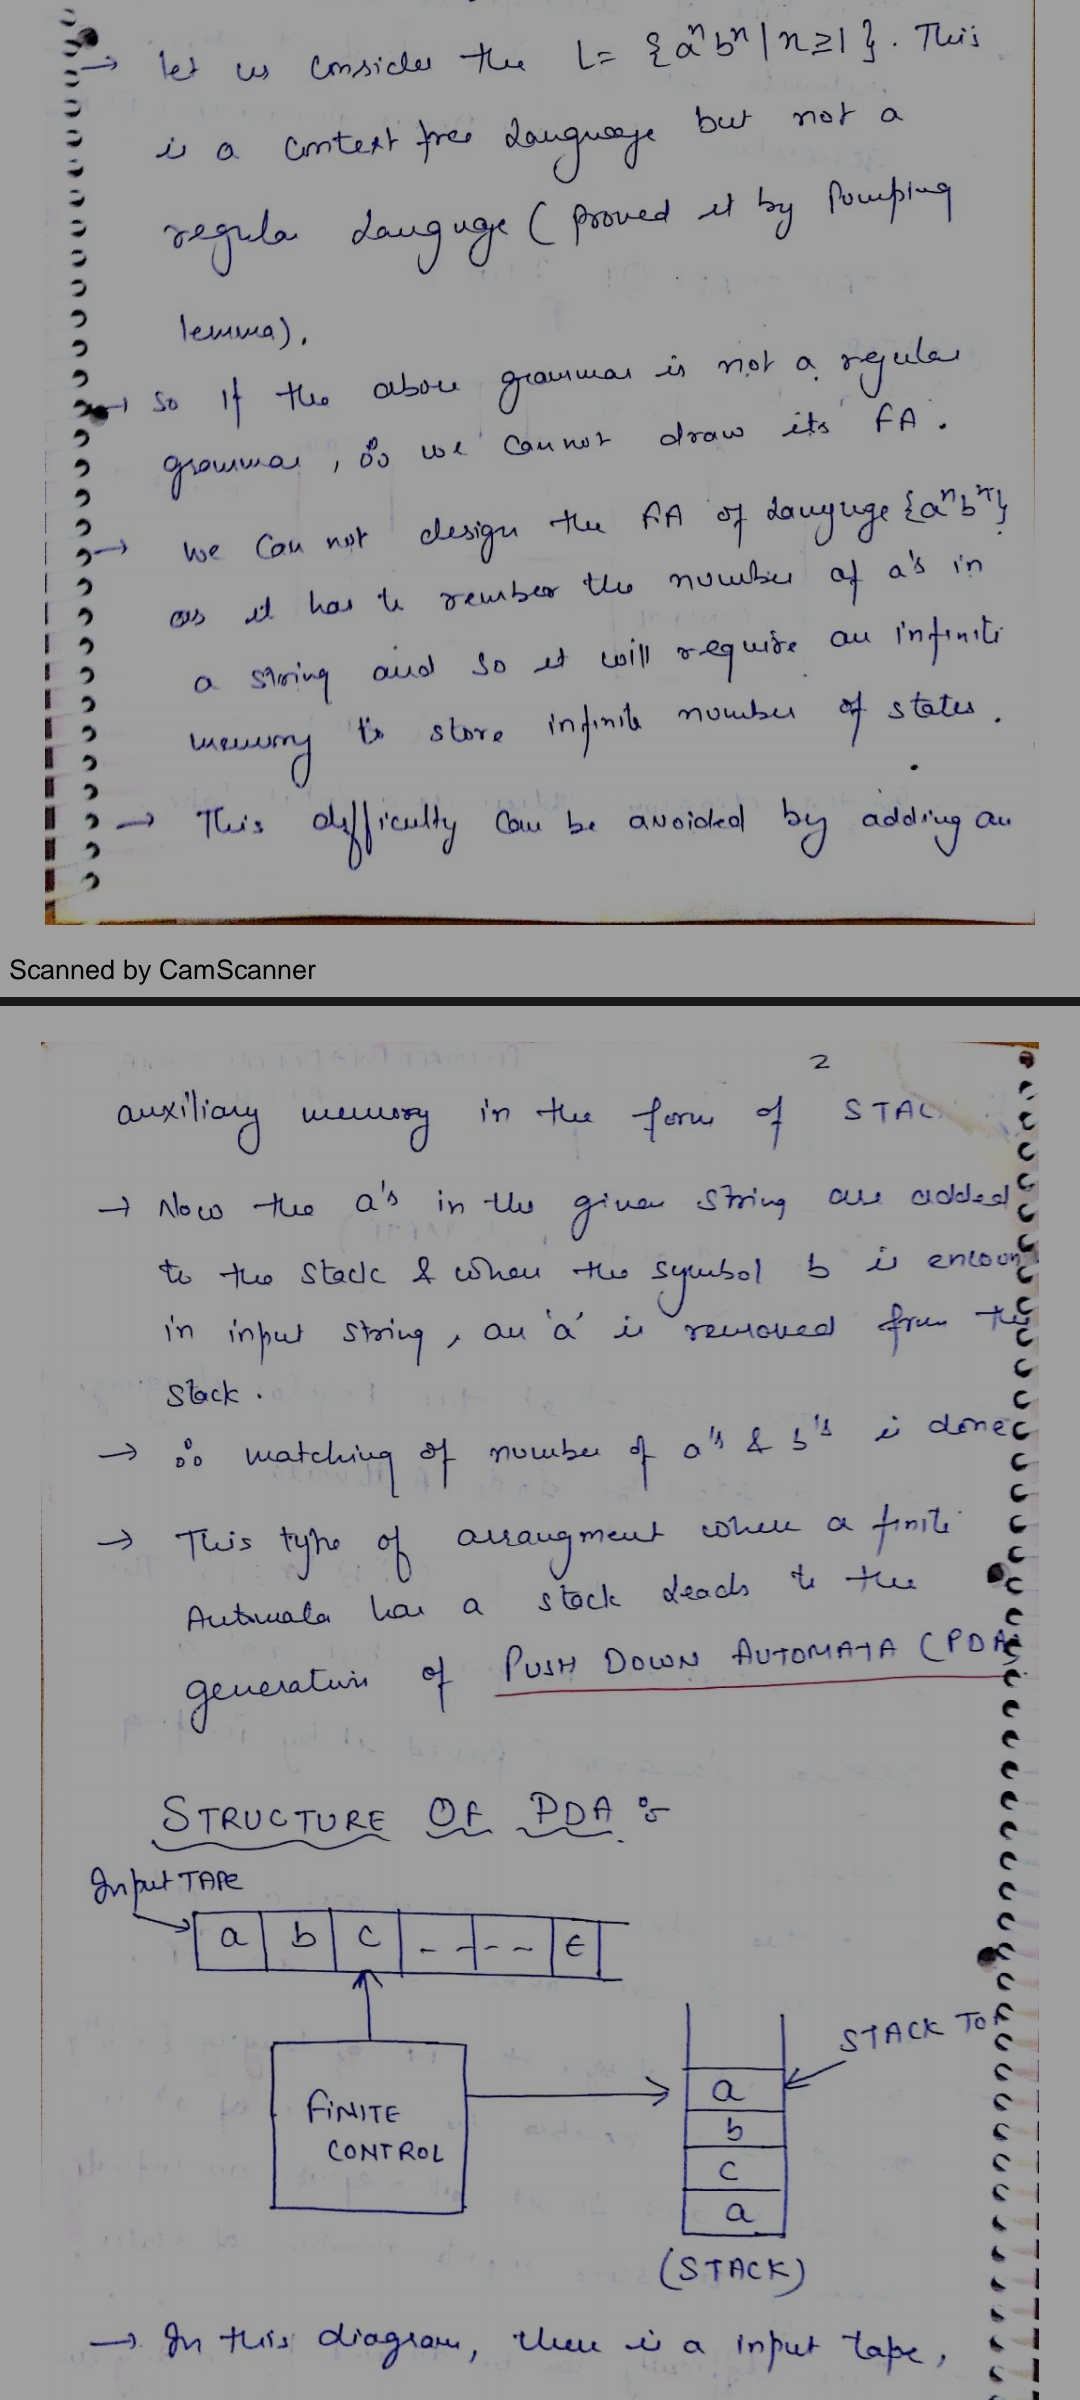 → let us consider the L= {aⁿbⁿ | n≥1}. This
is a context free Language but not a
regula Languge (proved it by Pumping
lemma).
→ so If the above grammar is not a regular
grammar, ∴ we cannot draw its FA.
→ we can not design the FA of Languge {aⁿbⁿ}
as it has to rember the number of a's in
a string and so it will require an infinite
memory to store infinite number of states.
→ This difficulty can be avoided by adding an
Scanned by CamScanner
2
auxiliary memory in the form of STAC
→ Now the a's in the given string are added
to the stack & when the symbol b is encoun
in input string, an 'a' is removed from the
stack.
→ ∴ matching of number of a's & b's is done
→ This type of arrangment where a finite
Automata has a stack Leads to the
generation of PUSH DOWN AUTOMATA (PDA)
STRUCTURE OF PDA :-
Input TAPE
a b c - - - - ε
STACK TOP
FINITE
CONTROL
a
b
c
a
(STACK)
→ In this diagram, there is a input tape,